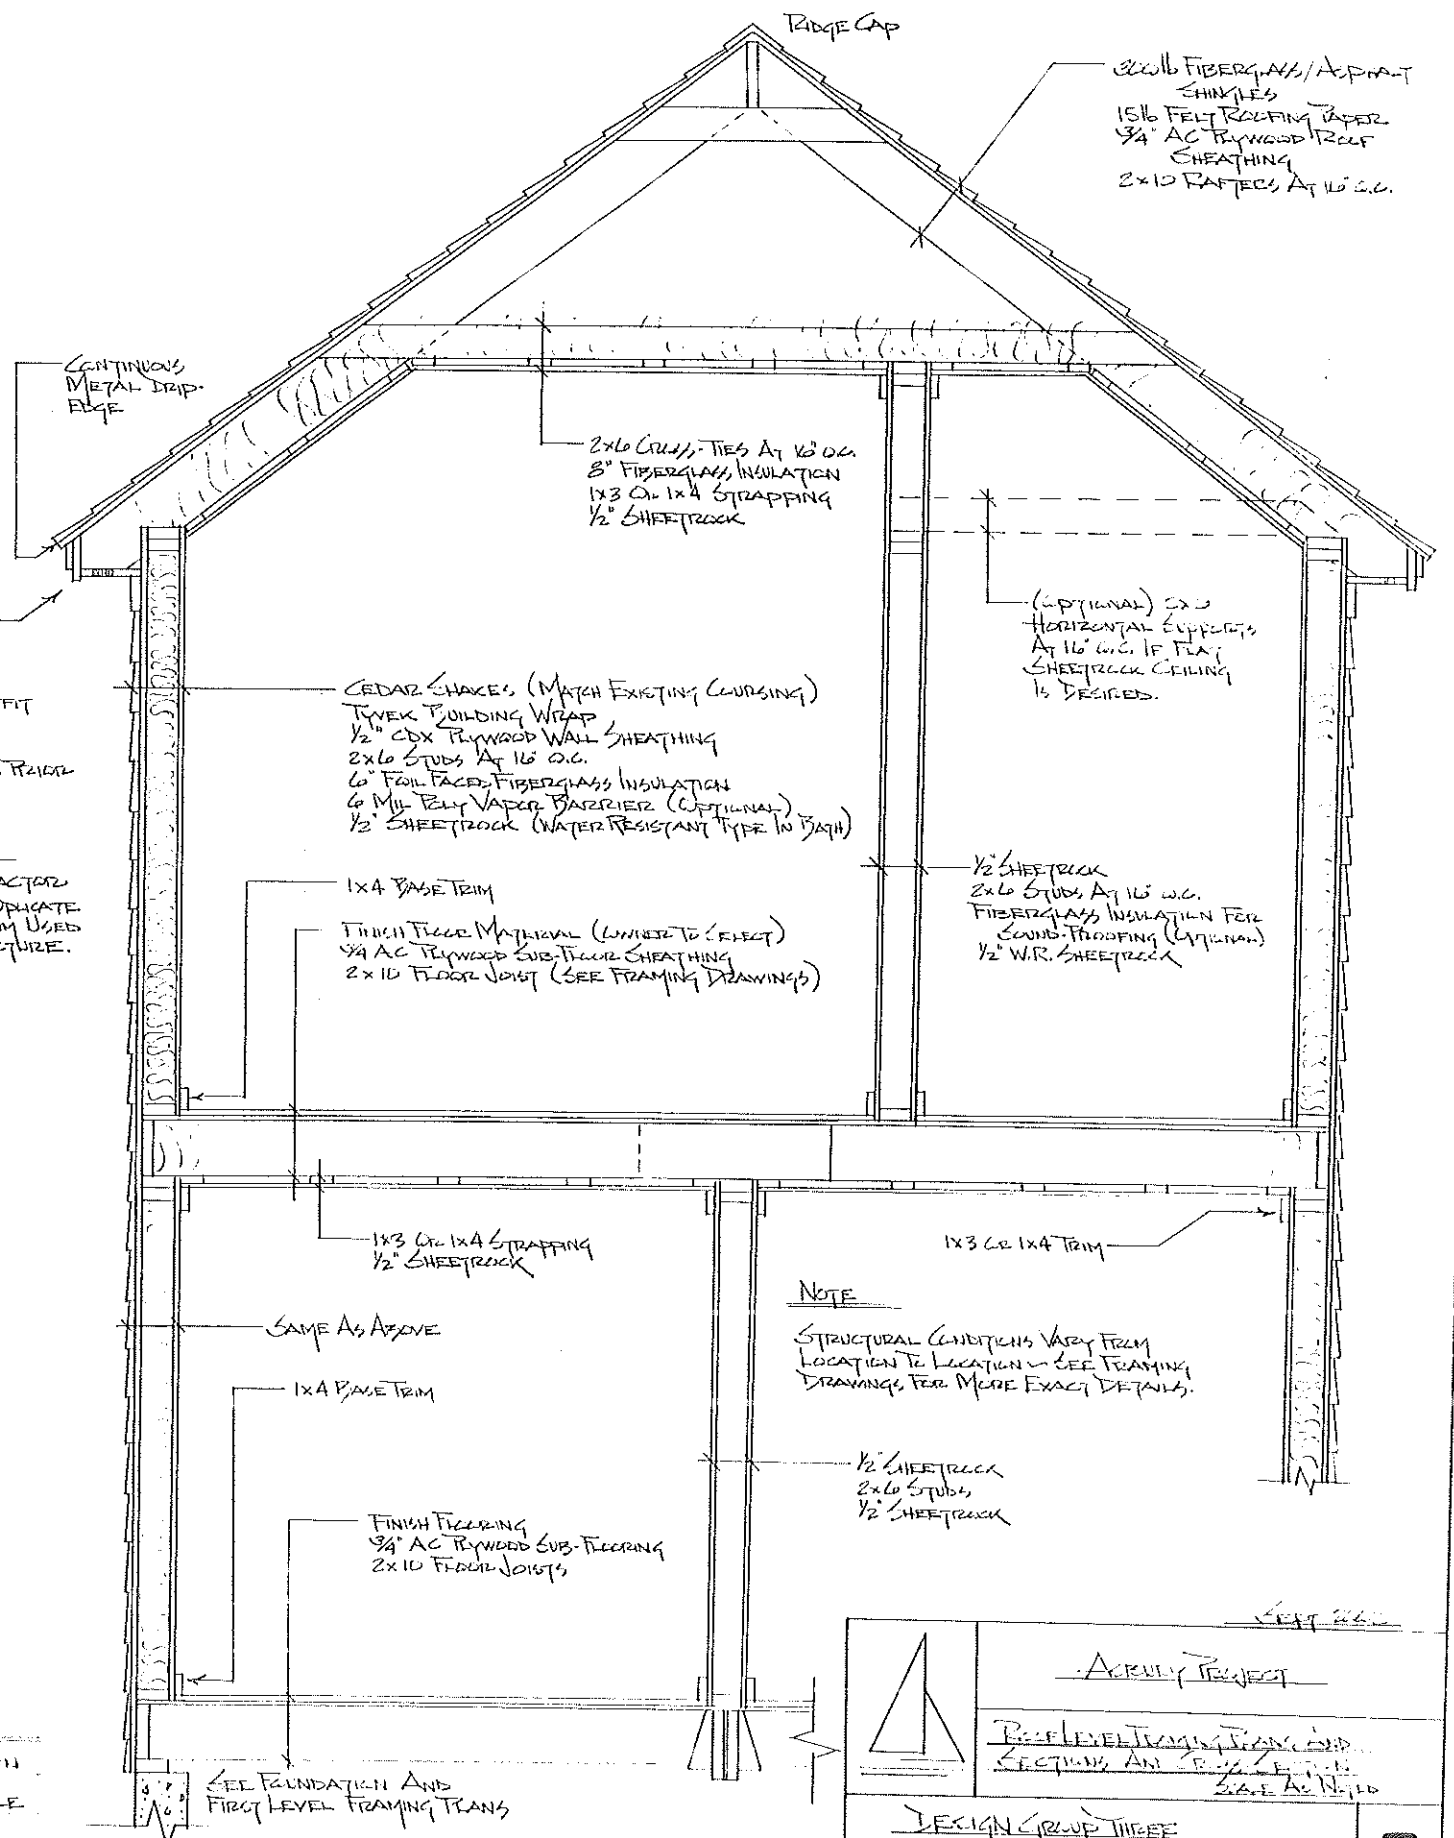 RIDGE CAP
FIBERGLASS/ASPHALT
SHINGLES
15lb FELT ROOFING PAPER
3/4" AC PLYWOOD ROOF
SHEATHING
2x10 RAFTERS AT 16" O.C.
CONTINUOUS
METAL DRIP-
EDGE
2x6 CROSS-TIES AT 16" O.C.
8" FIBERGLASS INSULATION
1x3 OR 1x4 STRAPPING
1/2" SHEETROCK
(OPTIONAL)
HORIZONTAL SUPPORTS
AT 16" O.C. IF FLAT
SHEETROCK CEILING
IS DESIRED.
CEDAR SHAKES (MATCH EXISTING COURSING)
TYVEK BUILDING WRAP
1/2" CDX PLYWOOD WALL SHEATHING
2x6 STUDS AT 16" O.C.
6" FOIL FACED FIBERGLASS INSULATION
6 MIL POLY VAPOR BARRIER (OPTIONAL)
1/2" SHEETROCK (WATER RESISTANT TYPE IN BATH)
FIT
PRIOR
ACTOR
DUPLICATE
USED
CTURE.
1x4 BASE TRIM
FINISH FLOOR MATERIAL (OWNER TO SELECT)
3/4 AC PLYWOOD SUB-FLOOR SHEATHING
2x10 FLOOR JOIST (SEE FRAMING DRAWINGS)
1/2" SHEETROCK
2x6 STUDS AT 16" O.C.
FIBERGLASS INSULATION FOR
SOUND-PROOFING (OPTIONAL)
1/2" W.R. SHEETROCK
1x3 OR 1x4 STRAPPING
1/2" SHEETROCK
1x3 OR 1x4 TRIM
NOTE
STRUCTURAL CONDITIONS VARY FROM
LOCATION TO LOCATION - SEE FRAMING
DRAWINGS FOR MORE EXACT DETAILS.
SAME AS ABOVE
1x4 BASE TRIM
1/2" SHEETROCK
2x6 STUDS
1/2" SHEETROCK
FINISH FLOORING
3/4" AC PLYWOOD SUB-FLOORING
2x10 FLOOR JOISTS
SEE FOUNDATION AND
FIRST LEVEL FRAMING PLANS
SEPT
PROJECT
ROOF LEVEL FRAMING PLANS, AND
SECTIONS, AND CROSS SECTION
SCALE AS NOTED
DESIGN GROUP THREE